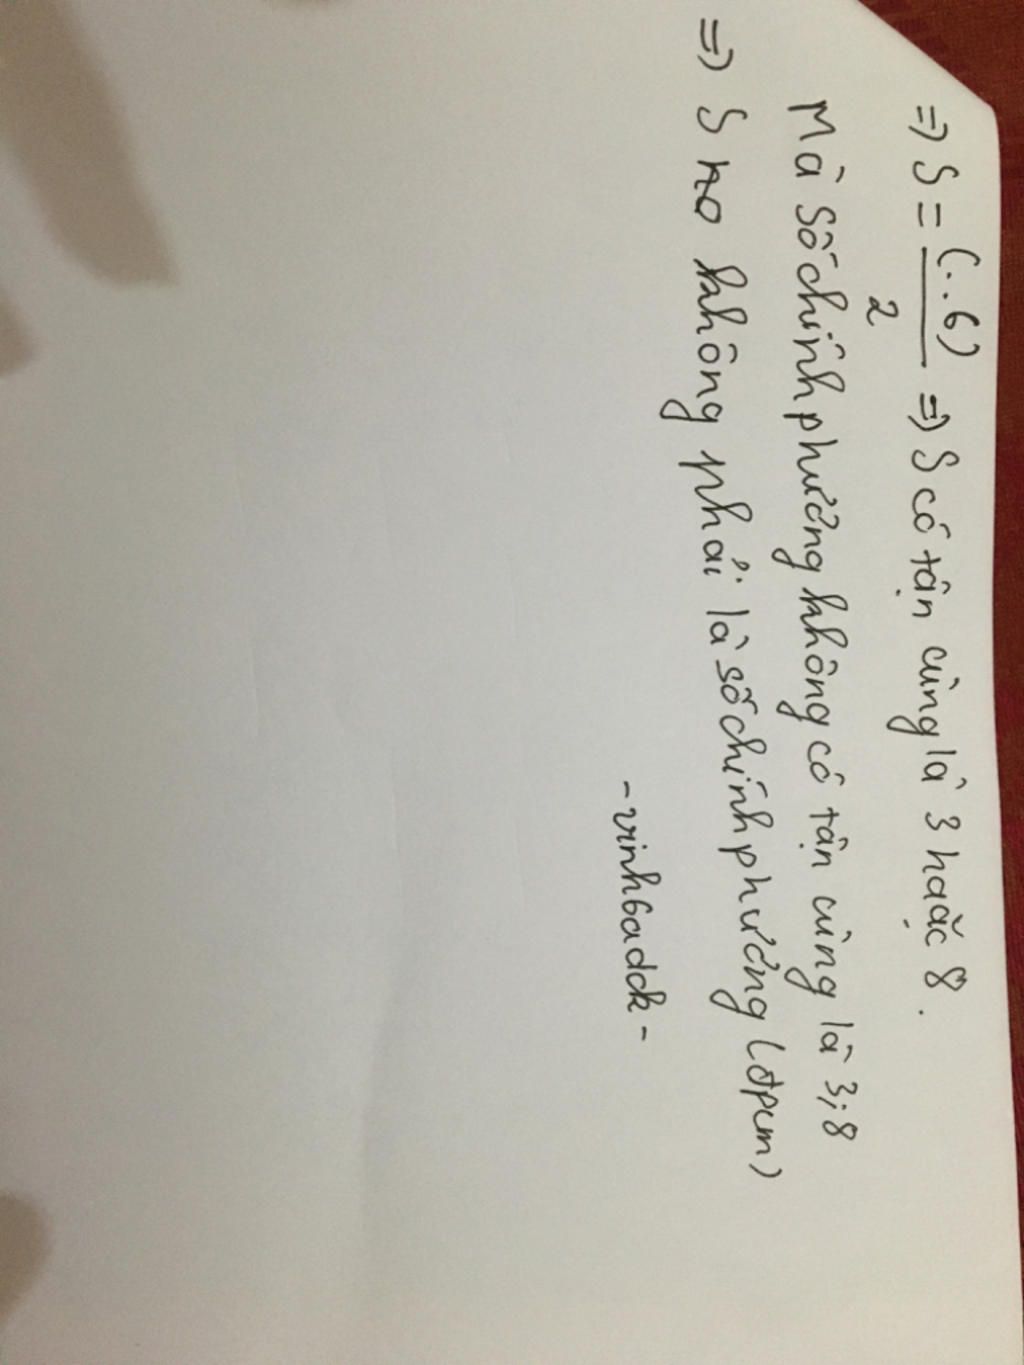 => S = (...6)/2 => S có tận cùng là 3 hoặc 8.
Mà số chính phương không có tận cùng là 3; 8
=> S không phải là số chính phương (đpcm)
-vinh6adck-